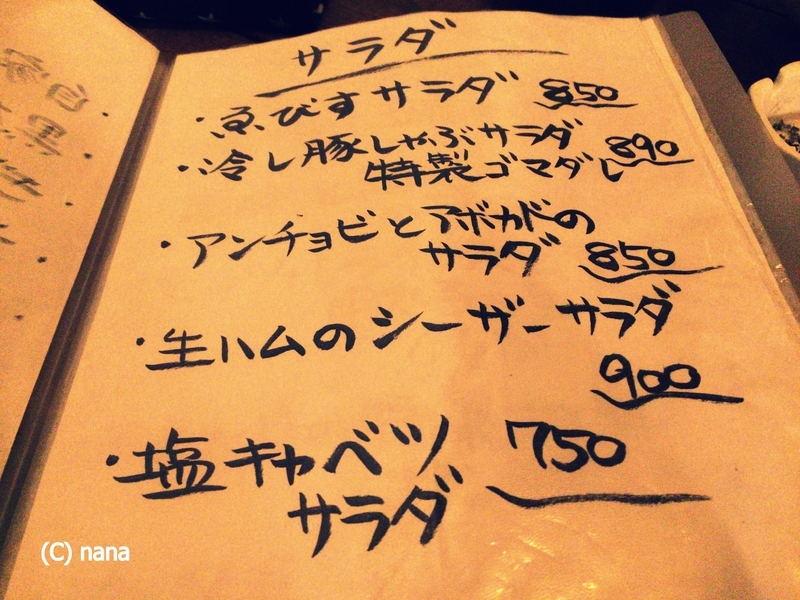 サラダ
・ゑびすサラダ 850
・冷し豚しゃぶサラダ 890
特製ゴマダレ
・アンチョビとアボカドの
サラダ 850
・生ハムのシーザーサラダ
900
・塩キャベツ 750
サラダ
(C) nana